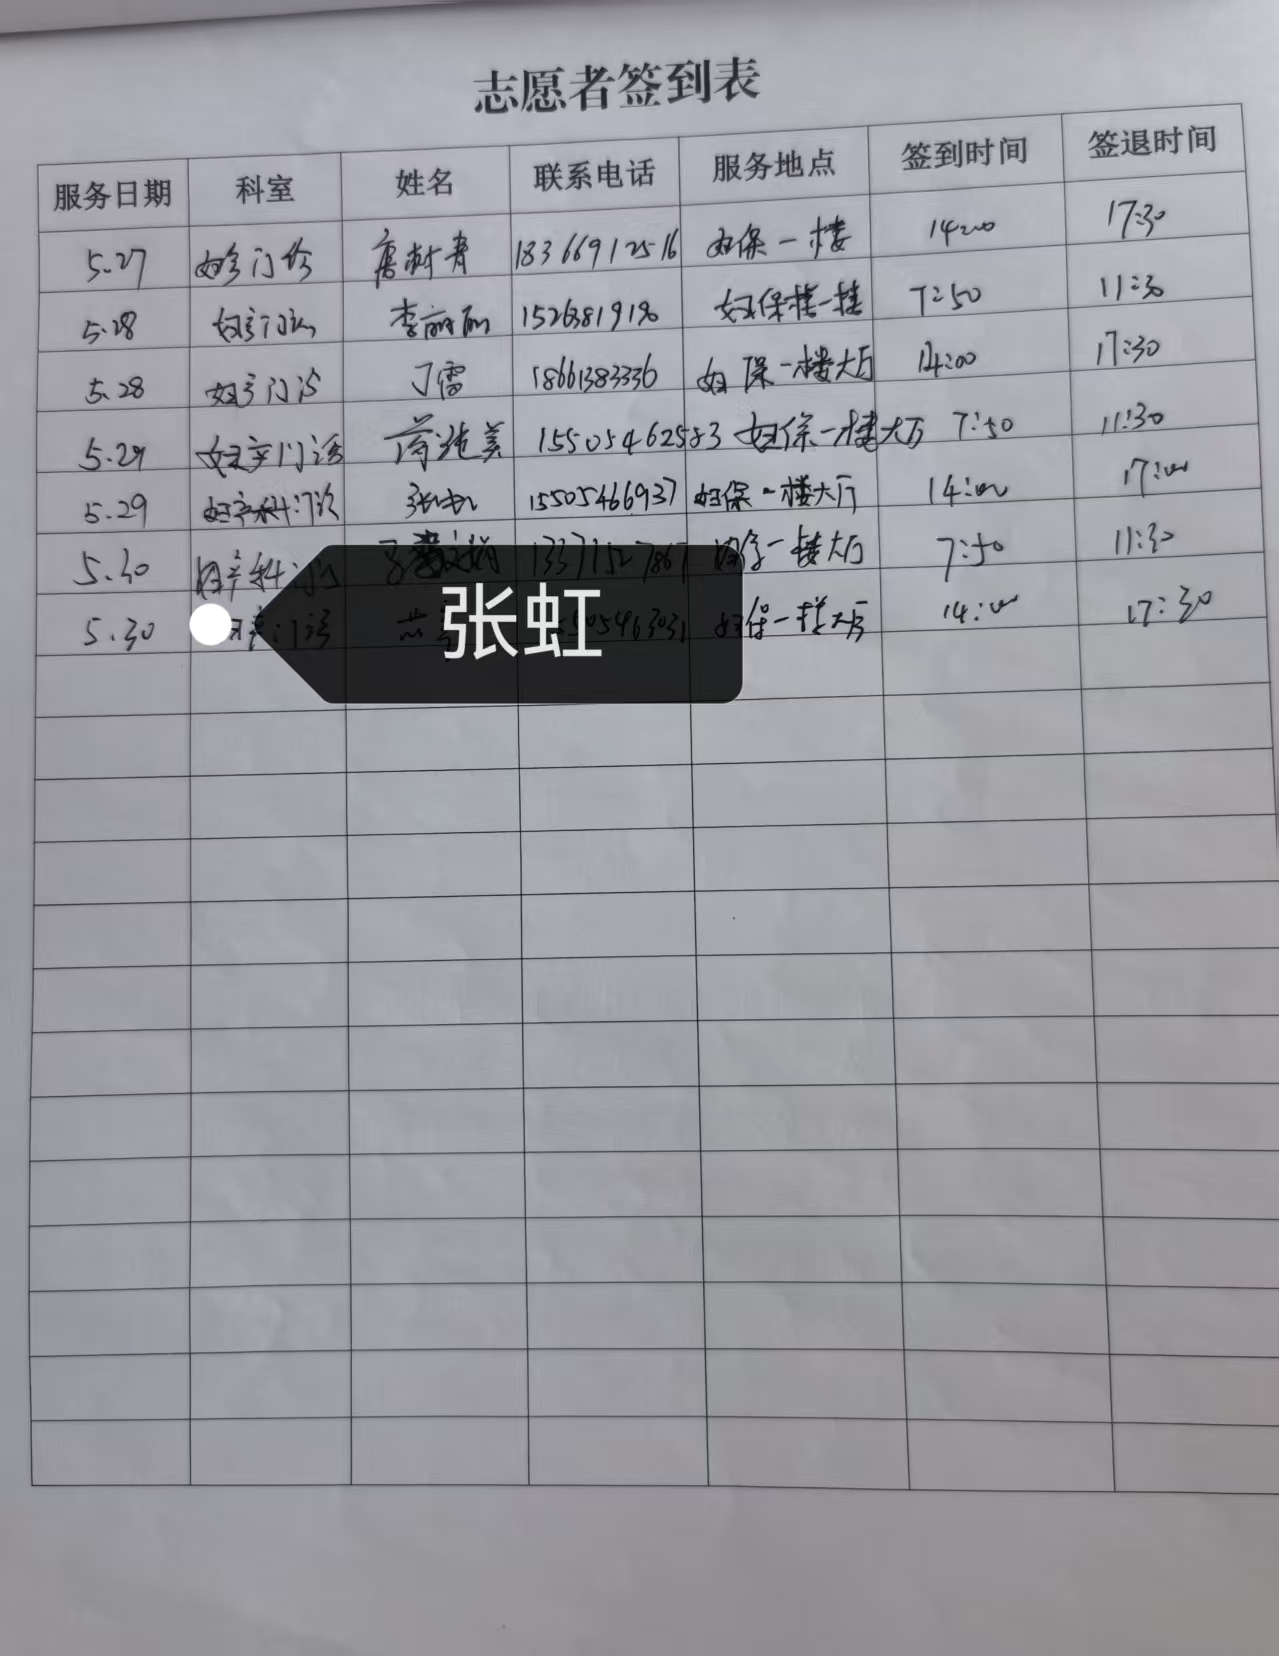 志愿者签到表
服务日期 科室 姓名 联系电话 服务地点 签到时间 签退时间
5.27 妇产门诊 18366912516 妇保一楼 14:00 17:30
5.28 妇产门诊 李丽丽 妇保楼一楼 7:50 11:30
5.28 妇产门诊 丁雷 18661383336 妇保一楼大厅 14:00 17:30
5.29 妇产门诊 蒋 美 15505462583 妇保一楼大厅 7:50 11:30
5.29 妇产科门诊 张虹 15505466937 妇保一楼大厅 14:00 17:00
5.30 妇产科门诊 妇保一楼大厅 7:50 11:30
5.30 门诊 妇保一楼大厅 14:00 17:30
张虹